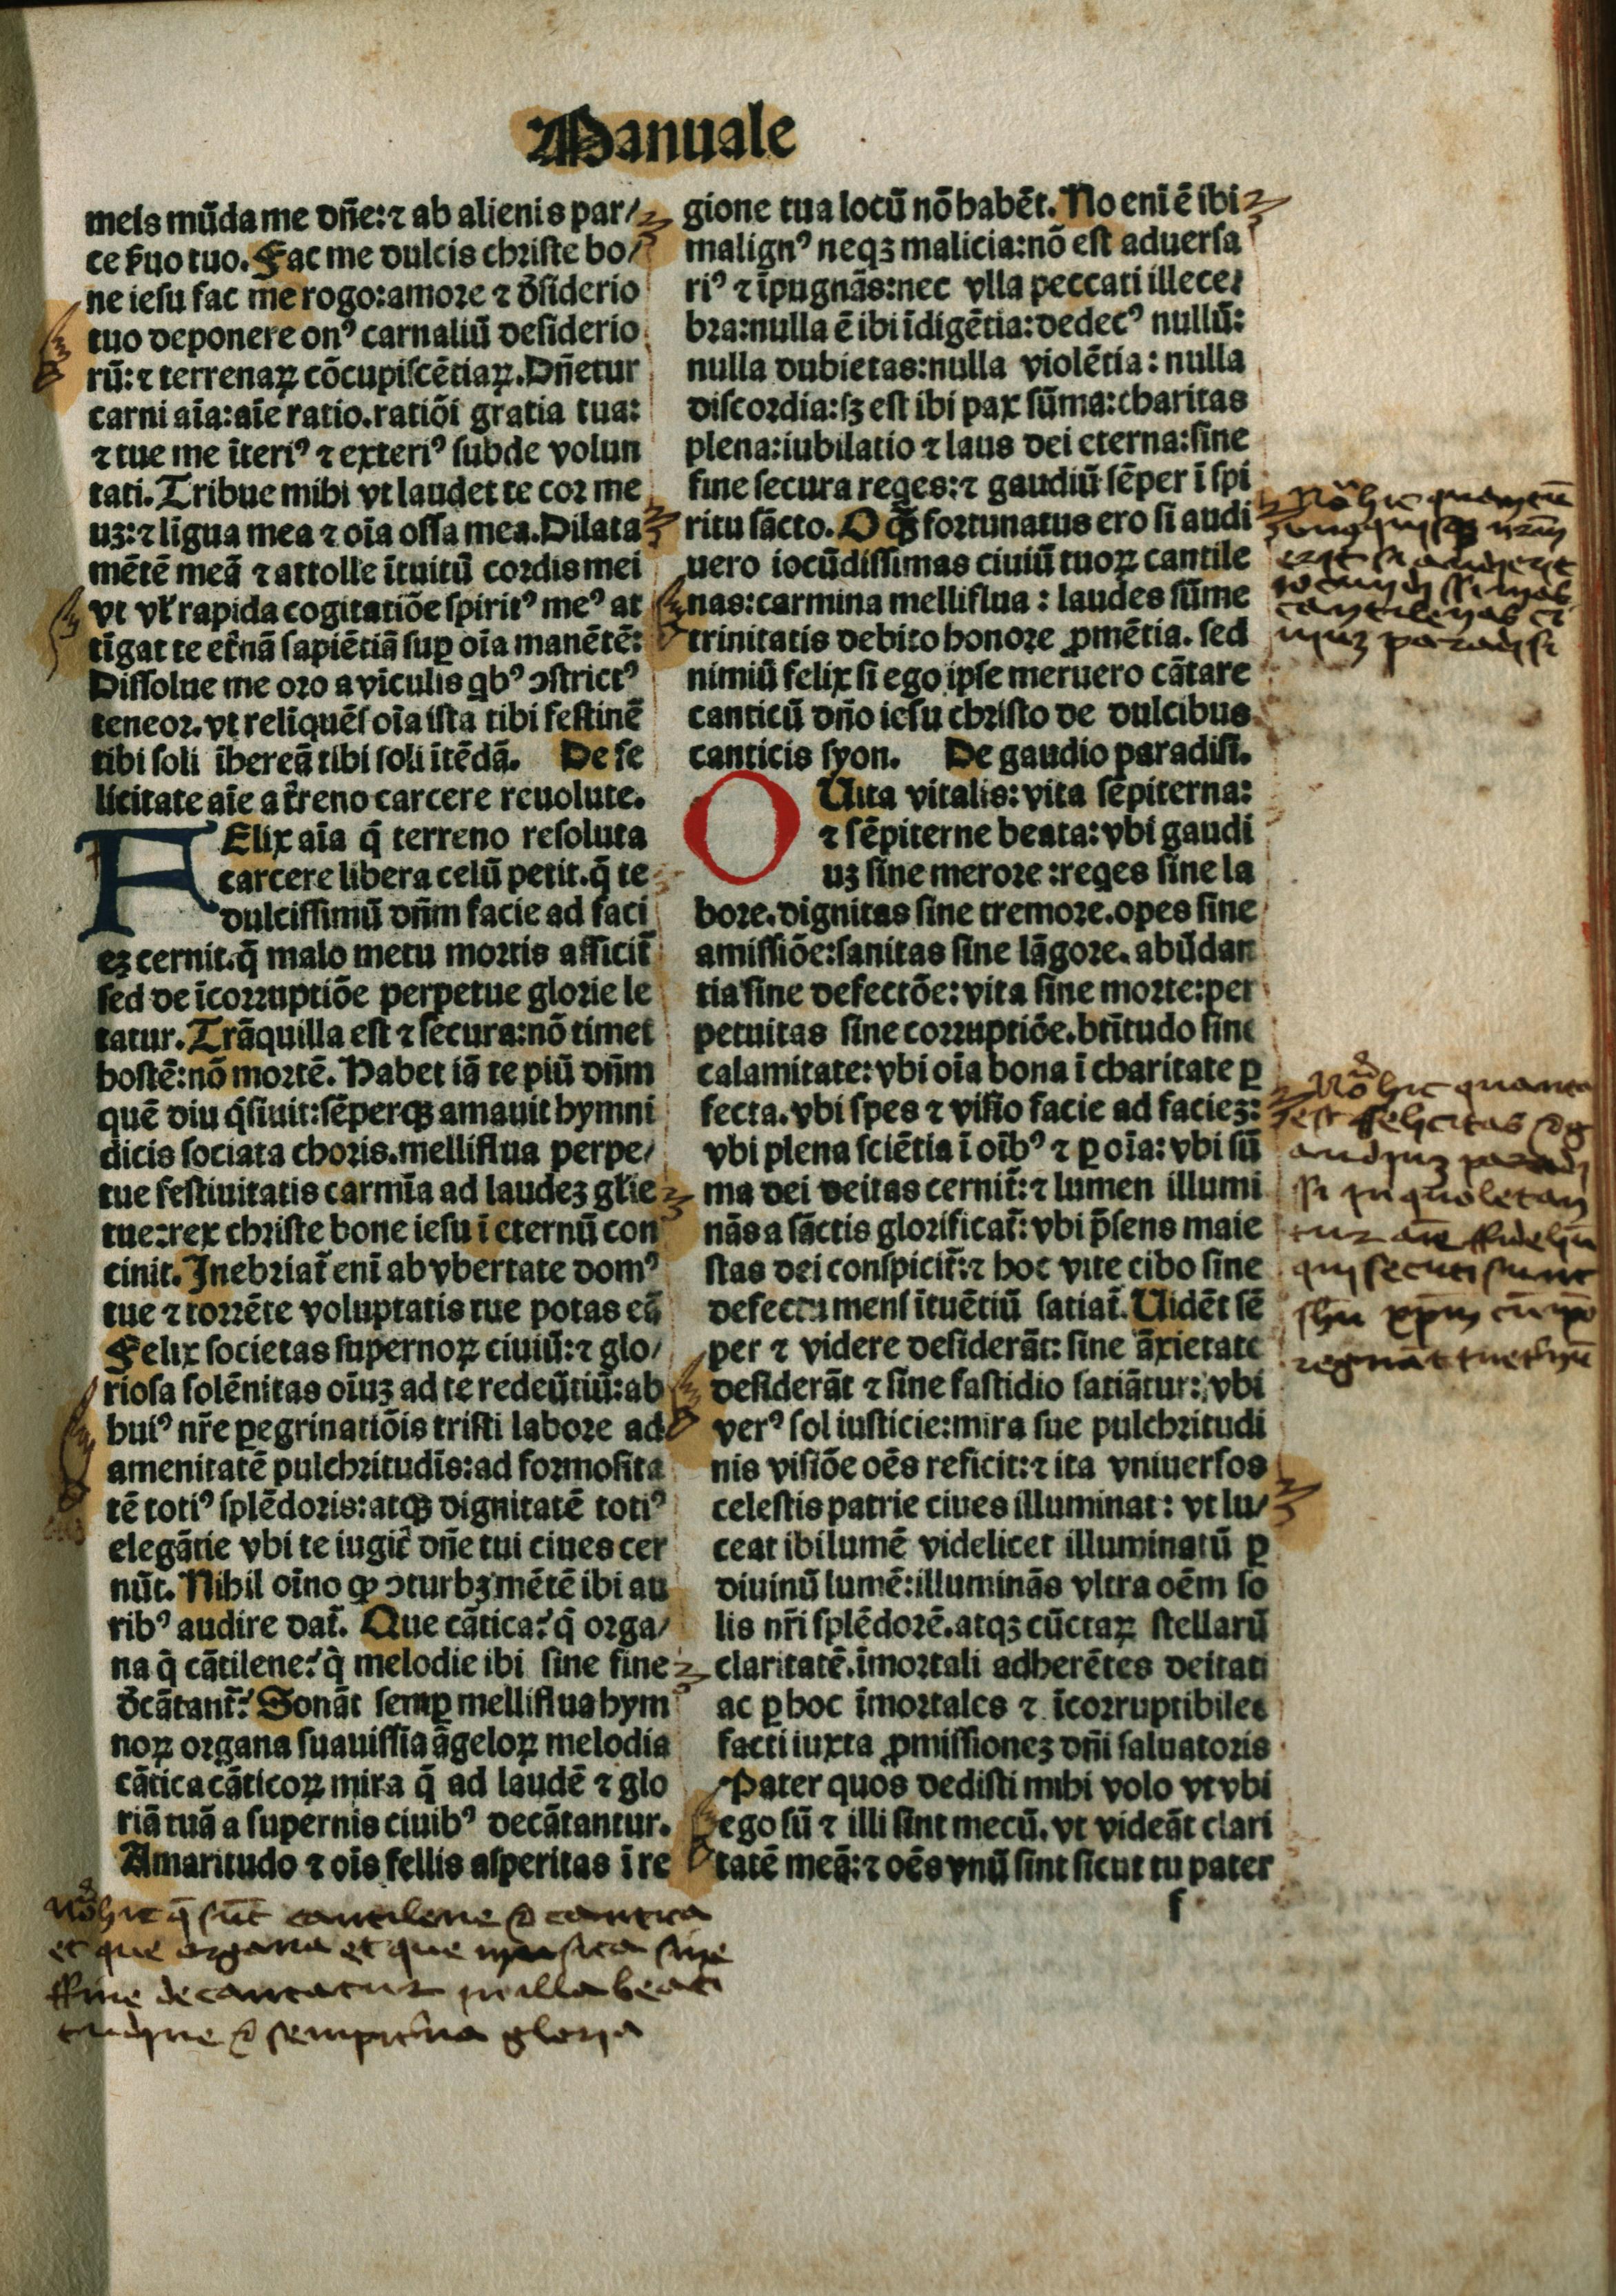 Manuale
meis mūda me dn̄e: ⁊ ab alienis par/
ce ẜuo tuo. Fac me dulcis christe bo/
ne iesu fac me rogo: amore ⁊ d̄siderio
tuo deponere onꝰ carnaliū desiderio
rū: ⁊ terrenaꝝ cōcupiscētiaꝝ. Dn̄etur
carni aīa: aīe ratio. ratiōi gratia tua:
⁊ tue me īteriꝰ ⁊ exteriꝰ subde volun
tati. Tribue mihi vt laudet te cor me
uꝫ: ⁊ līgua mea ⁊ oīa ossa mea. Dilata
mētē meā ⁊ attolle ītuitū cordis mei
vt vl̄ rapida cogitatiōe spiritꝰ meꝰ at
tīgat te et̄nā sapiētiā suꝑ oīa manētē:
Dissolue me oro a vīculis qͥbꝰ ꝯstrictꝰ
teneor. vt relīquēs oīa ista tibi festinē
tibi soli īhereā tibi soli ītēdā. De fe
licitate aīe a t̄reno carcere reuolute.
FElix aīa q̄ terreno resoluta
carcere libera celū petit. q̄ te
dulcissimū dn̄m facie ad faci
eꝫ cernit. q̄ malo metu mortis afficit̄
sed de īcorruptiōe perpetue glorie le
tatur. Trāquilla est ⁊ secura: nō timet
hostē: nō mortē. Habet iā te piū dn̄m
quē diu q̄siuit: sēperqꝫ amauit hymni
dicis sociata choris. melliflua perpe/
tue festiuitatis carmīa ad laudeꝫ gl̄ie
tue: rex christe bone iesu ī eternū con
cinit. Inebriat̄ enī ab vbertate domꝰ
tue ⁊ torrēte voluptatis tue potas eā
Felix societas supernoꝝ ciuiū: ⁊ glo/
riosa solēnitas oīuꝫ ad te redeūtiū: ab
huiꝰ nr̄e ꝑegrinatiōis tristi labore ad
amenitatē pulchritudīs: ad formosita
tē totiꝰ splēdoris: atqꝫ dignitatē totiꝰ
elegātie vbi te iugit̄ dn̄e tui ciues cer
nūt. Nihil oīno qꝫ ꝯturbꝫ mētē ibi au
ribꝰ audire dat̄. Que cātica? q̄ orga/
na q̄ cātilene? q̄ melodie ibi sine fine
d̄cātant̄? Sonāt semꝑ melliflua hym
noꝝ organa suauissīa āgeloꝝ melodia
cātica cāticoꝝ mira q̄ ad laudē ⁊ glo
riā tuā a supernis ciuibꝰ decātantur.
Amaritudo ⁊ oīs fellis asperitas ī re
Nōᵈ hic q̄ sūt cantilene & cantica
et que organa et que musica sine
ffine decantatur in illa beati
tudine & sempit̄na gloria
gione tua locū nō habēt. No enī ē ibi
malignꝰ neqꝫ malicia: nō est aduersa
riꝰ ⁊ īpugnās: nec vlla peccati illece/
bra: nulla ē ibi īdigētia: dedecꝰ nullū:
nulla dubietas: nulla violētia: nulla
discordia: sꝫ est ibi pax sūma: charitas
plena: iubilatio ⁊ laus dei eterna: sine
fine secura reqes: ⁊ gaudiū sēper ī spi
ritu sācto. O qꝫ̄ fortunatus ero si audi
uero iocūdissimas ciuiū tuoꝝ cantile
nas: carmina melliflua: laudes sūme
trinitatis debito honore ꝓmētia. sed
nimiū felix si ego ipse meruero cātare
canticū dn̄o iesu christo de dulcibus
canticis syon. De gaudio paradisi.
O Uita vitalis: vita sēpiterna:
⁊ sēpiterne beata: vbi gaudi
uꝫ sine merore: reqes sine la
bore. dignitas sine tremore. opes sine
amissiōe: sanitas sine lāgore. abūdan
tia sine defectōe: vita sine morte: per
petuitas sine corruptiōe. btītudo sine
calamitate: vbi oīa bona ī charitate ꝑ
fecta. vbi spes ⁊ visio facie ad facieꝫ:
vbi plena sciētia ī oībꝰ ⁊ ꝑ oīa: vbi sū
ma dei deitas cernit̄: ⁊ lumen illumi
nās a sāctis glorificat̄: vbi p̄sens maie
stas dei conspicit̄: ⁊ hoc vite cibo sine
defectu mens ītuētiū satiat̄. Uidēt sē
per ⁊ videre desiderāt: sine āxietate
desiderāt ⁊ sine fastidio satiātur: vbi
verꝰ sol iusticie: mira sue pulchritudi
nis visiōe oēs reficit: ⁊ ita vniuersos
celestis patrie ciues illuminat: vt lu/
ceat ibi lumē videlicet illuminatū ꝑ
diuinū lumē: illuminās vltra oēm so
lis nr̄i splēdorē. atqꝫ cūctaꝝ stellarū
claritatē. īmortali adherētes deitati
ac ꝑ hoc īmortales ⁊ īcorruptibiles
facti iuxta ꝓmissioneꝫ dn̄i saluatoris
Pater quos dedisti mihi volo vt vbi
ego sū ⁊ illi sint mecū. vt videāt clari
tatē meā: ⁊ oēs vnū sint sicut tu pater
f
Nōᵃ hic quantū
unusquisqꝫ nr̄m
erit si audierit
iocundissimas
cantilenas ci
uiuꝫ paradisi
Nōᵈ hic quanta
est ffelicitas & g
audiuꝫ paradi
si in quo letan
tur aīe ffideliū
qui secuti sunt
ihu xp̄m cū ip̄o
regnāt in et̄nū